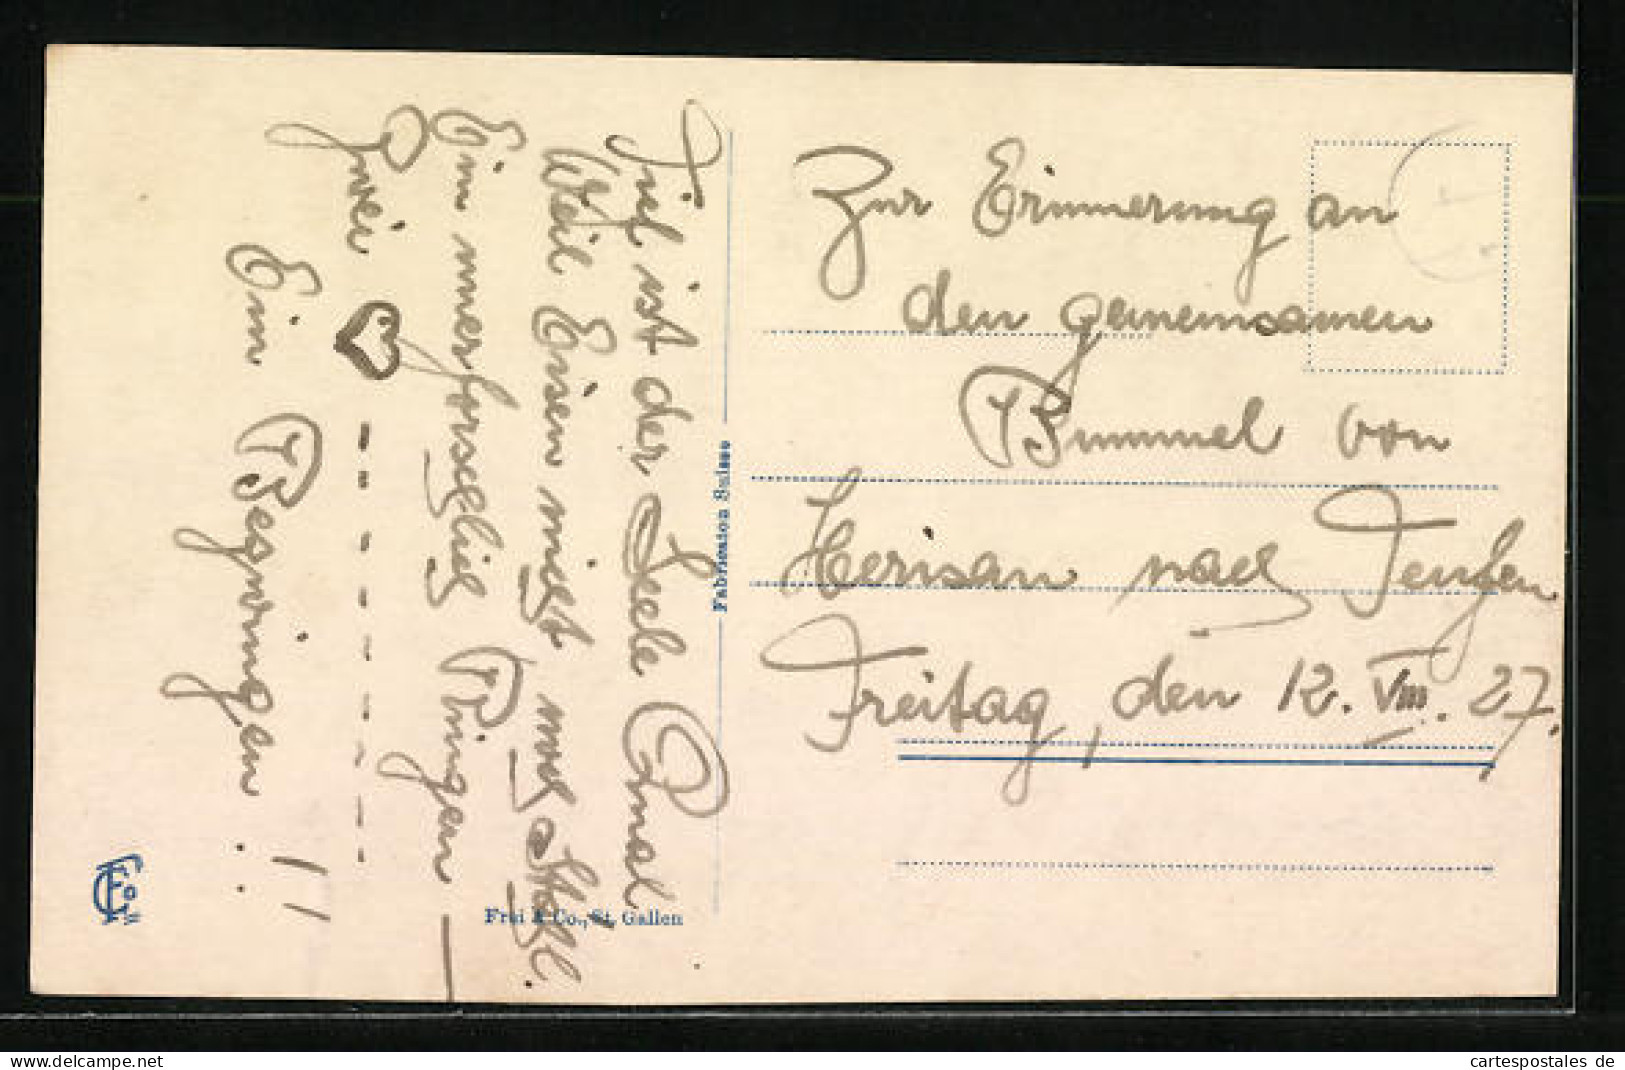 Tief ist der Seele Qual
Weil Eisen nicht noch Stahl.
Ein unerforschlich Bringen —
Zwei
Ein Bezwingen..!!
Fabrication Suisse
Frei & Co., St. Gallen
Zur Erinnerung an
den gemeinsamen
Bummel von
Herisau nach Teufen
Freitag, den 12. VIII. 27.
cartespostales de